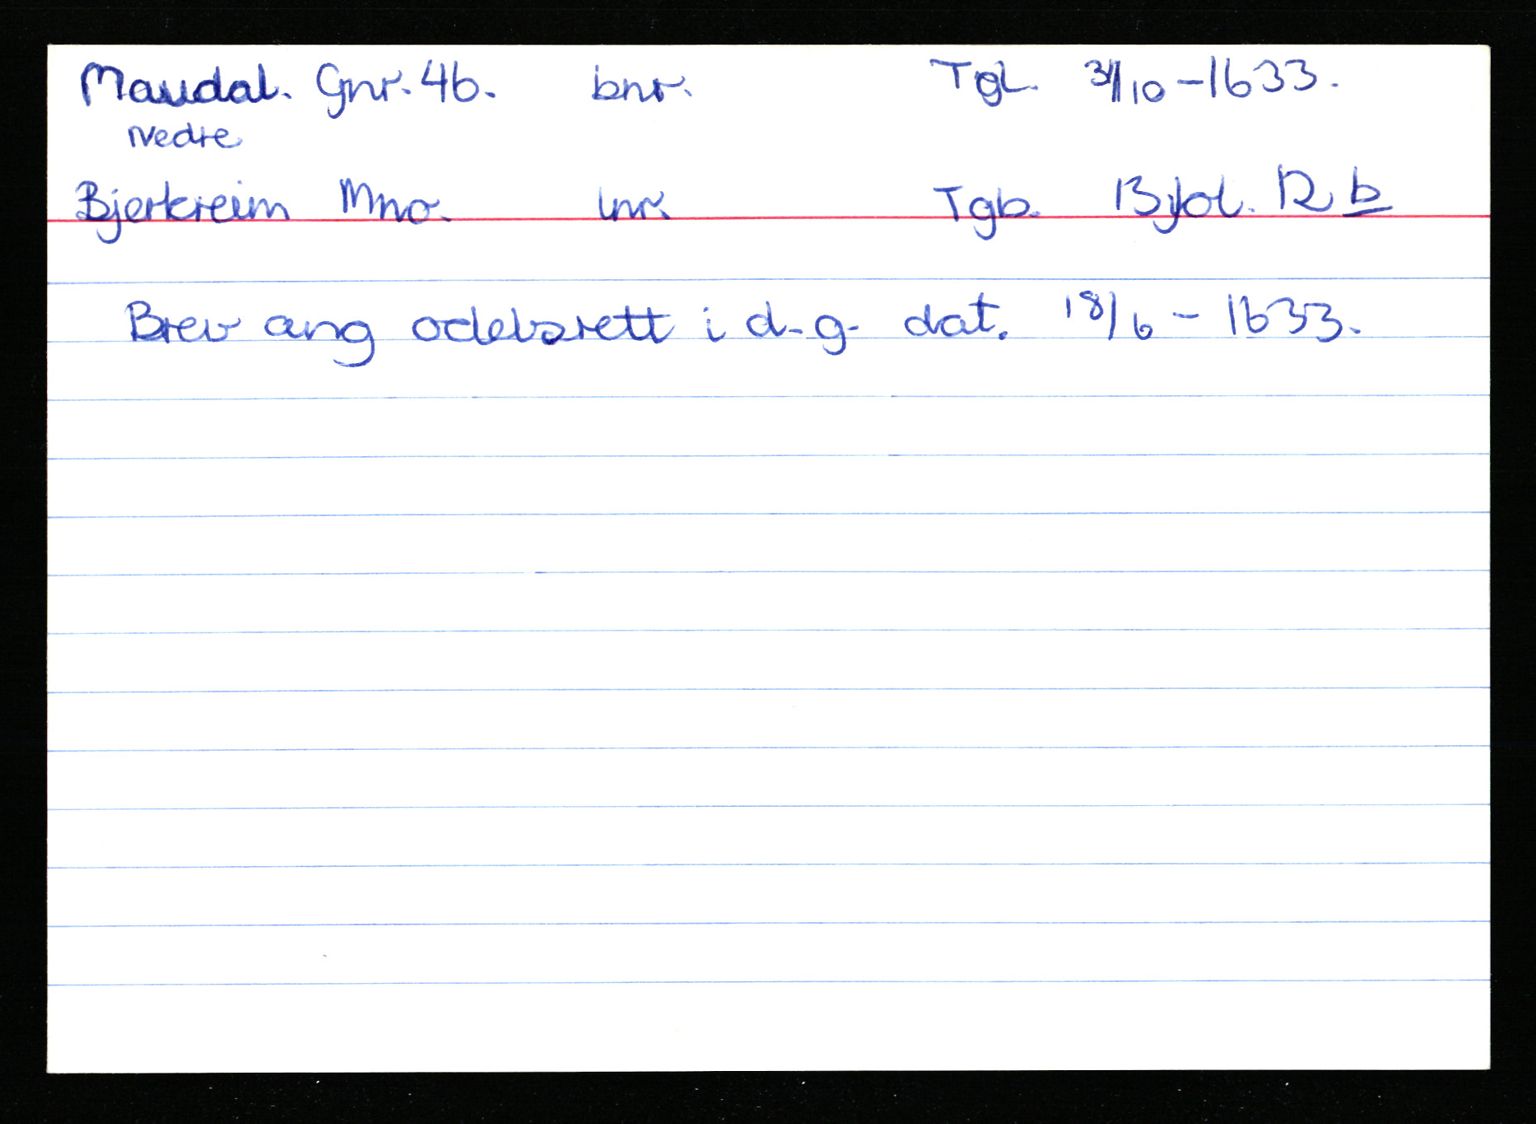 Maudal. Gnr. 46. bnr. Tgl. 31/10-1633.
Nedre
Bjerkreim Mno. lnr. Tgb. 13 fol. 12 b
Brev ang odelsrett i d-g- dat. 18/6 - 1633.